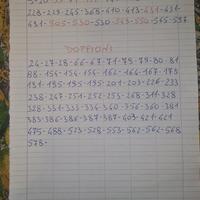 228-229-245-368-410-413-431-431-
431-505-530-530-543-550-565-597
DOPPIONI
24-27-28-66-67-71-79-79-80-81
88-154-154-154-162-164-167-173
191-195-195-195-201-203-226-233
238-247-251-252-253-268-311-328
328-331-333-334-340-356-360-381
383-386-386-387-387-403-421-421
475-488-523-528-553-562-562-568
578-